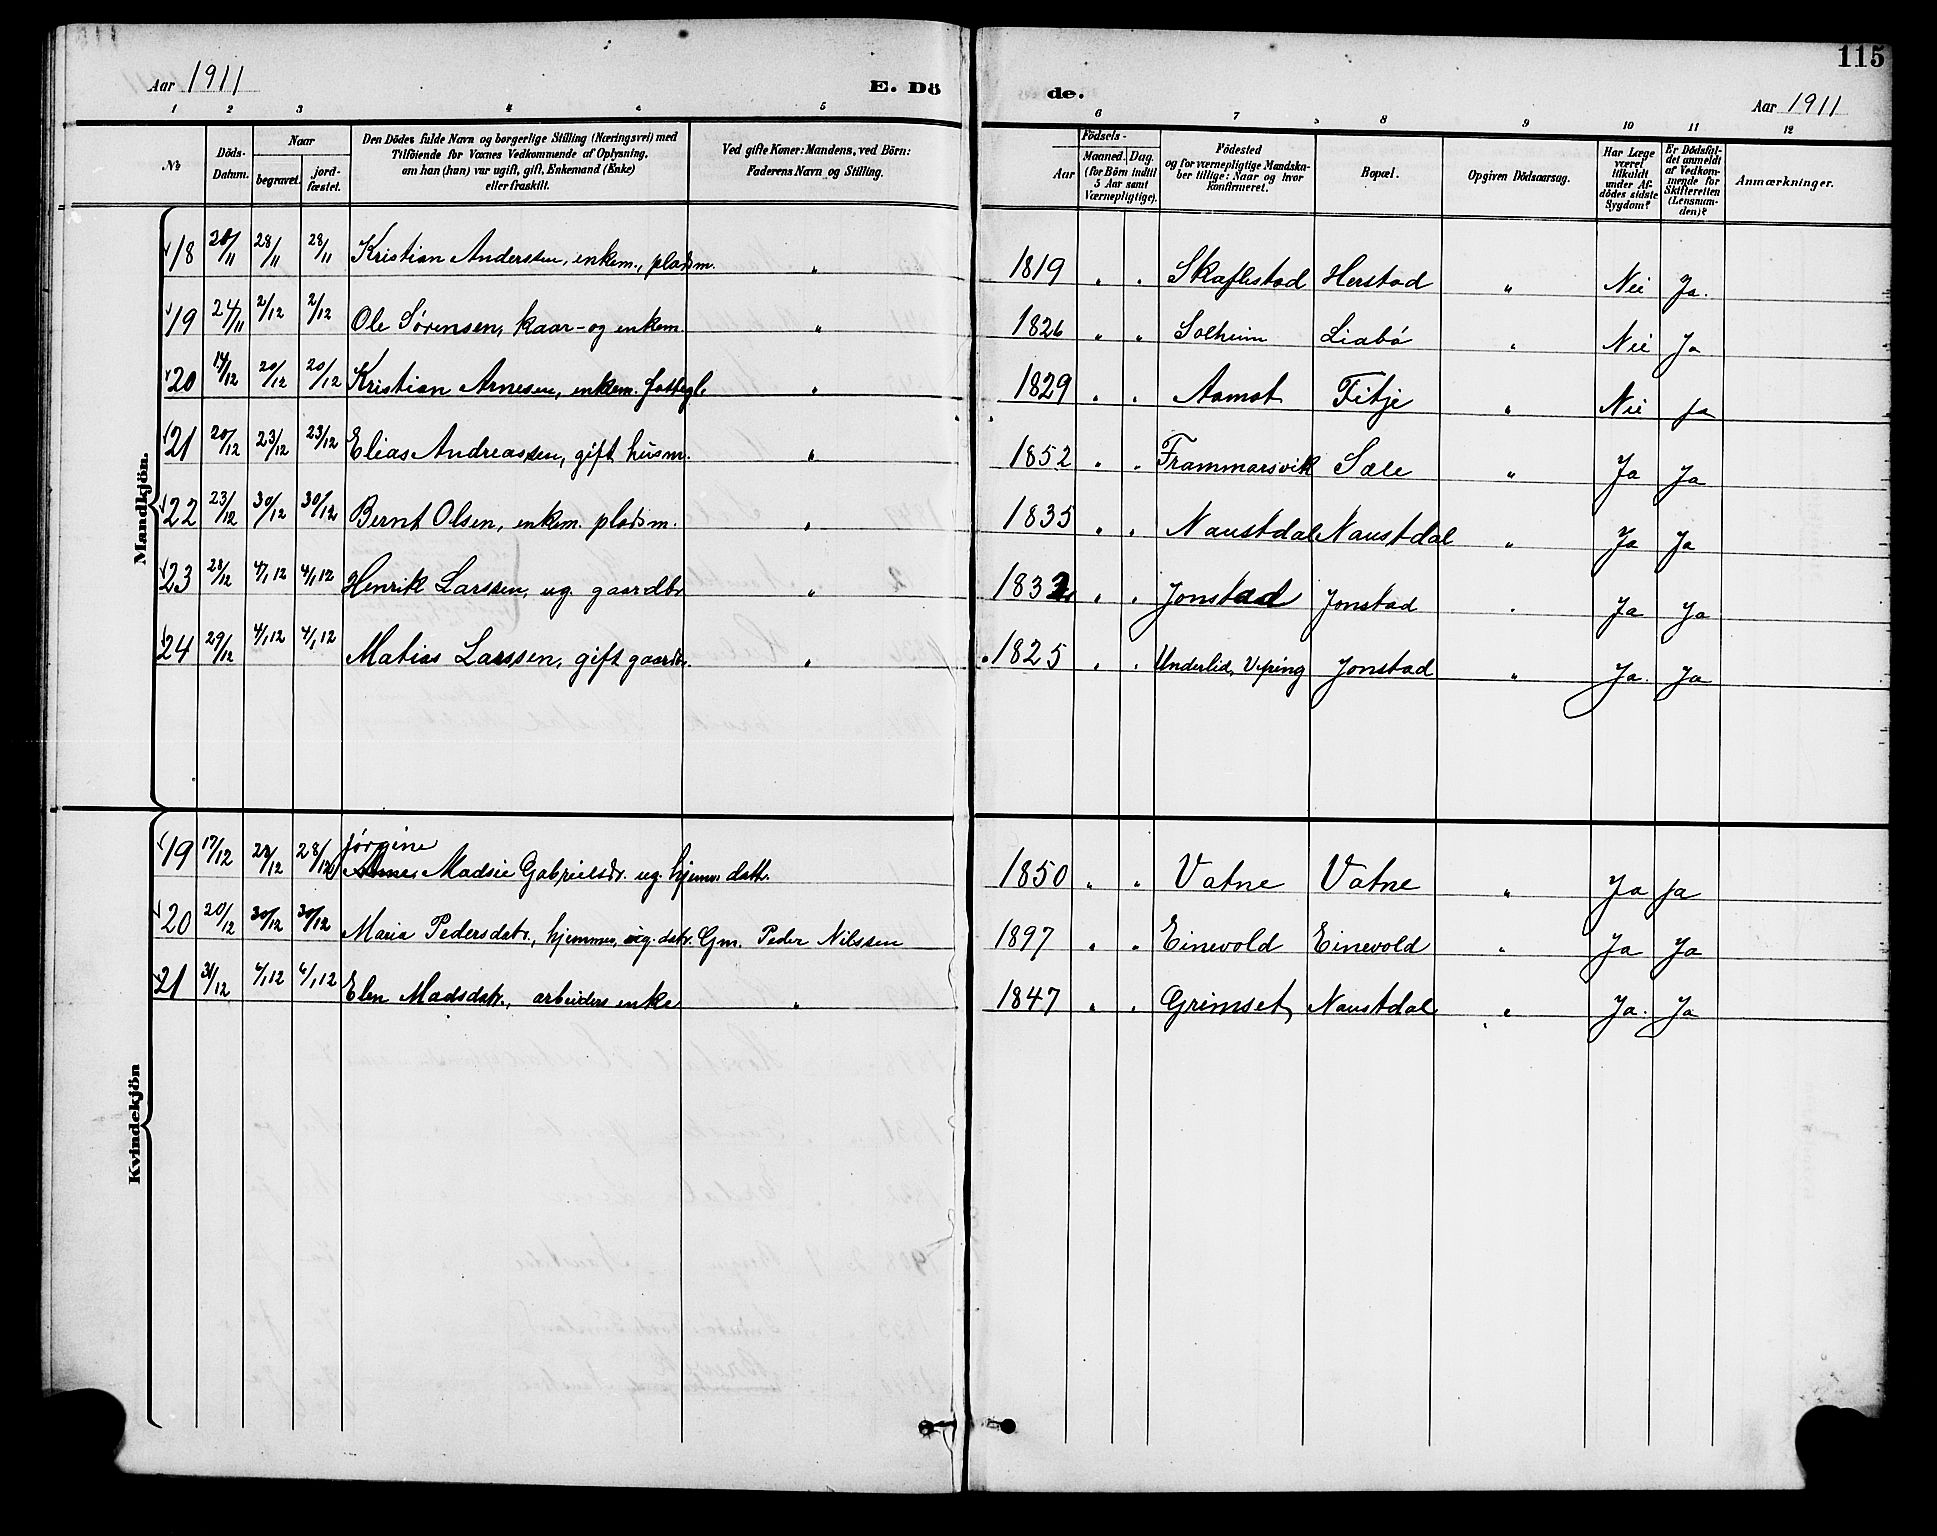 115
Aar 1911
E. Dö
de.
Aar 1911
1 2 3 4 5 6 7 8 9 10 11 12
№
Döds-Datum.
Naar
begravet.
jord-fæstet.
Den Dödes fulde Navn og borgerlige Stilling (Næringsvei) med
Tilföiende for Voxnes Vedkommende af Oplysning,
om han (hun) var ugift, gift, Enkemand (Enke)
eller fraskilt.
Ved gifte Koner: Mandens, ved Börn:
Faderens Navn og Stilling.
Födsels-
Aar
Maaned. Dag.
(for Börn indtil
5 Aar samt
Værnepligtige).
Födested
og for værnepligtige Mandska-
ber tillige: Naar og hvor
konfirmeret.
Bopæl.
Opgiven Dödsaarsag.
Har Læge
været
tilkaldt
under Af-
dödes sidste
Sygdom?
Er Dödsfal-
det anmeldt
af Vedkom-
mende for
Skifteretten
(Lensman-
den)?
Anmærkninger.
Mandkjön.
18 20/11 28/11 28/11 Kristian Anderssen, enkem., pladsm. " 1819 " " Skaflestad Herstad " Nei Ja.
19 24/11 2/12 2/12 Ole Sørensen, kaar- og enkem. " 1826 " " Solheim Liabø " Nei Ja
20 14/12 20/12 20/12 Kristian Arnesen, enkem. " 1829 " " Aamot Fitje " Nei Ja
21 20/12 23/12 23/12 Elias Andreassen, gift husm. " 1852 " " Frammarsvik Sæle " Ja Ja
22 23/12 30/12 30/12 Bernt Olsen, enkem. pladsm. " 1835 " " Naustdal Naustdal " Ja Ja
23 28/12 4/1 12 4/1 12 Henrik Larssen, ug. gaardbr " 1832 " " Jonstad Jonstad " Ja Ja
24 29/12 4/1 12 4/1 12 Matias Larssen, gift gaardbr. " 1825 " " Underlid, Vefring Jonstad " Ja. Ja
Kvindekjön
Jørgine
19 17/12 28/12 28/12 Madsie Gabrielsdr. ug. hjemmev. datt. 1850 " " Vatne Vatne " Ja Ja
20 20/12 30/12 30/12 Maria Pedersdatr., hjemmev. ug. datr. Gm. Peder Nilssen 1897 " " Einevold Einevold " Ja Ja
21 31/12 4/1 12 4/1 12 Elen Madsdatr., arbeiders enke " 1847 " " Grimset Naustdal " Ja. Ja